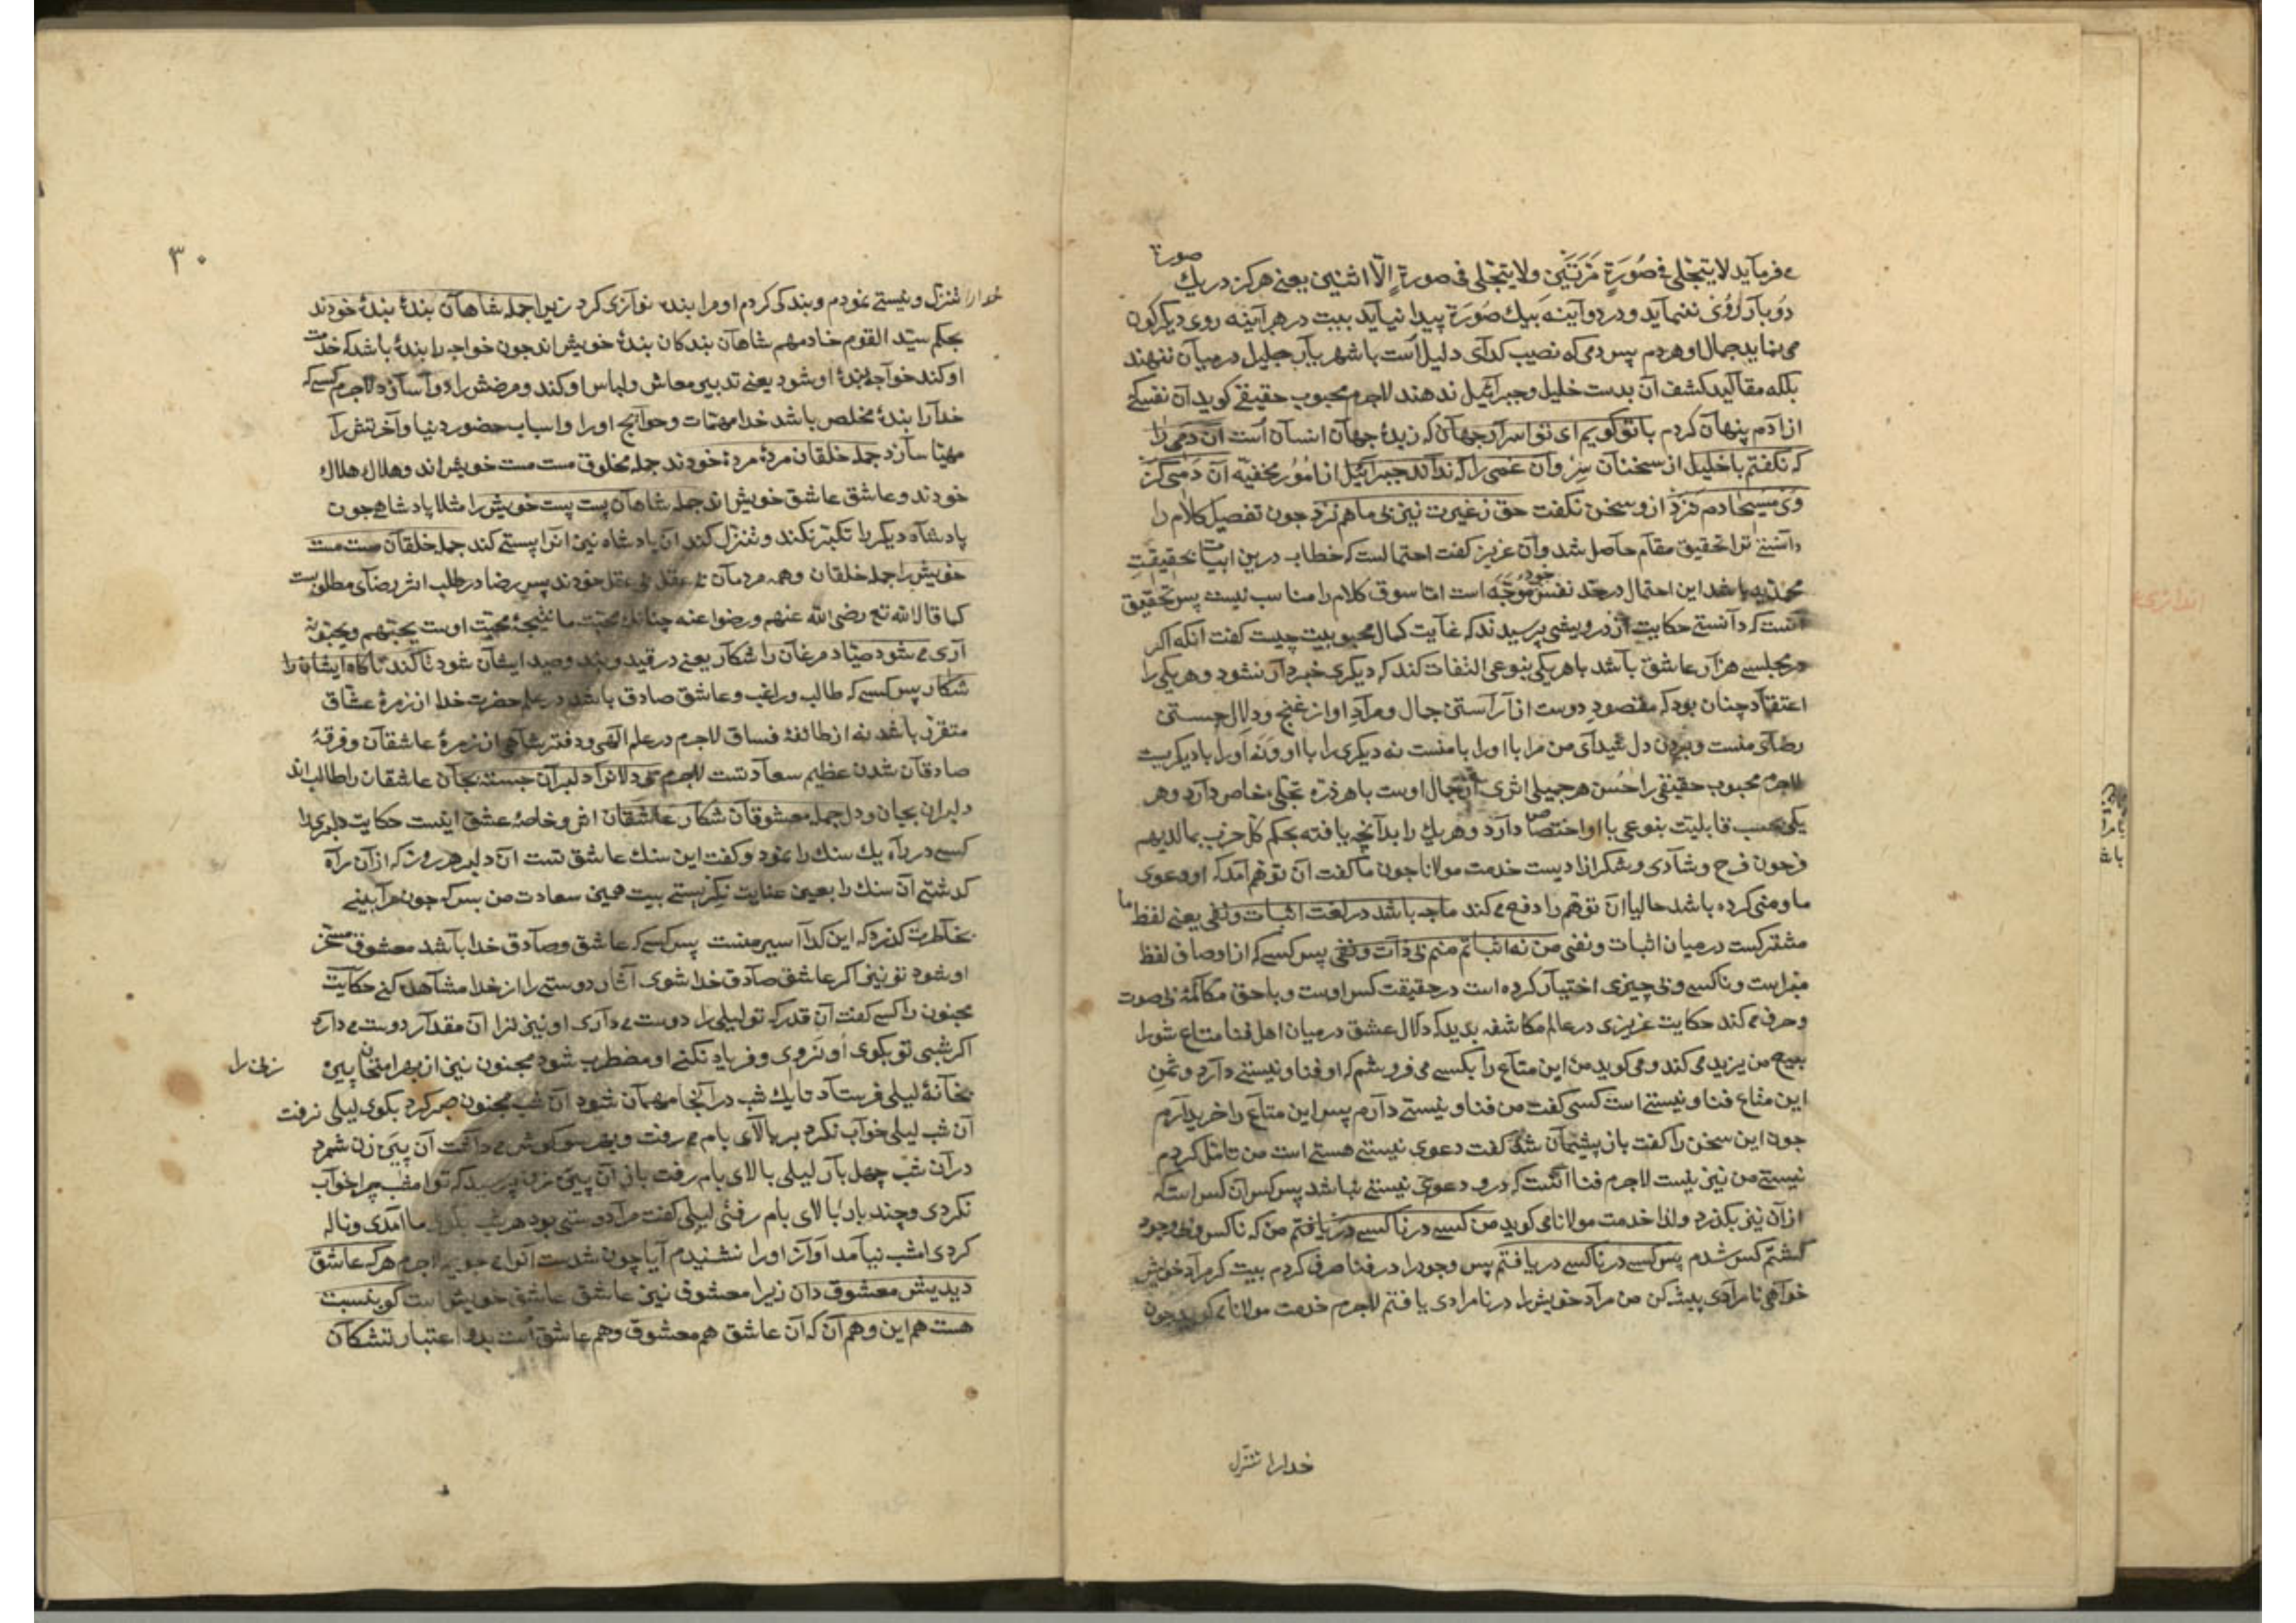 صورة
می فرماید لا یتجلی فی صُورَةٍ مَرَّتَیْن ولا یتجلی فی صورةٍ اِلّا اثنین یعنی هرکز در یك
دو بار رُوی ننماید و در دو آینه بیك صُورَة پیدا نیاید بیت در هر آینه روی دیکرکون
می نماید جمال او هر دم پس دمی که نصیب کدای دلیل است با شهریار جلیل در میان ننهند
بلکه مقالید کشف آن بدست خلیل و جبرائیل ندهند لاجرم محبوب حقیقی کوید آن نفسی که
از آدم پنهان کردم با تو کویم ای تو اسرار جهان که زبدۀ جهان انسان است آن دمی را
که نکفتم با خلیل از سخنان سِرّ و آن غمی را که نداند جبرائیل از اُمُور مخفیّه آن دمی کز
وی مسیحا دم نزد از و سخن نکفت حق ز غیرت نیز بی ما هم نزد جون تفصیل کلام را
دانستی ترا تحقیق مقام حاصل شد و آن عزیز کفت احتمالست که خطاب درین ابیات بحقیقتِ
محمدیه باشد این احتمال در حدّ نفس خود موجّه است امّا سوق کلام را مناسب نیست پس تحقیق
آنست که دانستی حکایت از درویشی پرسیدند که غایت کمال محبوبیت چیست کفت انکه اکر
در مجلسی هزار عاشق باشد با هر یکی بنوعی التفات کند که دیکری خبردار نشود و هر یکی را
اعتقاد چنان بود که مقصودِ دوست از آراستن جمال و مرادِ او از غنج و دلال جستن
رضای منست و بردن دل شیدای من مرا با او را با منست نه دیکری را با او و نه او را با دیکریست
لاجرم محبوب حقیقی را حُسن هر جمیلی اثری از جمال اوست با هر ذرّه تجلّی خاص دارد و هر
یکی بحسب قابلیّت بنوعی با او اختصاص دارد و هر یك را بدآنچه یافته بحکم کلّ حزب بما لدیهم
فرحون فرح و شادی و شکر ازادیست خدمت مولانا جون ما کفت ان توهم آمد که او دعوی
ما و منی کرده باشد حالیا ان توهّم را دفع می کند ما چه باشد در لغت اثبات و نفی یعنی لفظ ما
مشترکست در میان اثبات و نفی من نه اثباتم منم بی ذات و نفی پس کسی که از اوصاف لفظ
مبراست و ناکسی و بی چیزی اختیار کرده است در حقیقت کس اوست و با حق مکالمۀ بی صوت
و حرف می کند حکایت عزیزی در عالم مکاشفه بدید که دلال عشق در میان اهل فنا متاع شورا
بیع من یزید می کند و می کوید من این متاع را بکسی می فروشم که او فنا و نیستی دارد و ثمنِ
این متاع فنا و نیستی است کسی کفت من فنا و نیستی دارم پس این متاع را خریدارم
جون این سخن را کفت باز پشیمان شد کفت دعوی نیستی هستی است من تامّل کردم
نیستی من نیز نیست لاجرم فنا آنست که درو دعوی نیستی نباشد پس کس آن کس است که
از آن نیز بکذرد و لذا خدمت مولانا می کوید من کسی در ناکسی دریافتم من که ناکس و بی وجود
کشتم کس شدم پس کسی در ناکسی دریافتم پس وجود را در فنا صرف کردم بیت کر مراد خویش
خواهی نامرادی پیشه کن من مراد خویش را در نامرادی یافتم لاجرم خدمت مولانا می کوید جون
خدارا تنزل
۳۰
خدارا تنزل و نیستی نمودم و بندکی کردم او مرا بنده نوازی کرد زیرا جمله شاهان بندۀ بندۀ خودند
بحکم سیّد القوم خادمهم شاهان بندکان بندۀ خویش اند جون خواجه را بندۀ باشد که خدمت
او کند خواجه بندۀ او شود یعنی تدبیر معاش و لباس او کند و مرضش را دوا سازد لاجرم کسی که
خدا را بندۀ مخلص باشد خدا مهمّات و حوائج او را و اسباب حضور دنیا و آخرتش را
مهیّا سازد جمله خلقان مردۀ مردۀ خودند جمله مخلوق مست مست خویش اند و هلاك هلاك
خودند و عاشق عاشق خویش اند جمله شاهان پست پست خویش را مثلا پادشاهی جون
پادشاه دیکر را تکبّر نکند و تنزل کند ان پادشاه نیز انرا پستی کند جمله خلقان مست مست
خویش را جمله خلقان و همه مردمان بی عقل بی عقل خودند پس رضا در طلب اثر رضای مطلوبست
کما قال الله تع رضی الله عنهم و رضوا عنه چنانك محبّت ما نتیجۀ محبّت اوست یحبّهم و یحبّونه
آری می شود صیّاد مرغان را شکار یعنی در قید و بند و صید ایشان شود تا کند ناکاه ایشان را
شکار پس کسی که طالب و راغب و عاشق صادق باشد در علم حضرت خدا از زمرۀ عشّاق
متقرّر باشد نه از طائفۀ فسّاق لاجرم در علم الهی و دفتر شاهی از زمرۀ عاشقان و فرقۀ
صادقان شدن عظیم سعادتست لاجرم بی دلان را دلبران جسته بجان عاشقان را طالب اند
دلبران بجان و دل جمله معشوقان شکار عاشقان اثر و خاصۀ عشق اینست حکایت دلبری را
کسی در راه یك سنك را نمود و کفت این سنك عاشق تست ان دلبر هر روز که از آن راه
کذشتی آن سنك را بعین عنایت نکریستی بیت همین سعادت من بس که جون مرا بینی
بخاطرت کذرد که این کدا اسیر منست پس کسی که عاشق و صادق خدا باشد معشوق مسخّر
او شود تو نیز اکر عاشق صادق خدا شوی آثار دوستی را از خدا مشاهده کنی حکایت
مجنون را کسی کفت آن قدر که تو لیلی را دوست می داری او نیز ترا ان مقدار دوست می دارد
اکر شبی تو بکوی او نروی و فریاد نکنی او مضطرب شود مجنون نیز از بهر امتحان پیره زنی را
بخانۀ لیلی فرستاد تا یك شب در آنجا مهمان شود آن شب مجنون صبر کرد بکوی لیلی نرفت
آن شب لیلی خواب نکرد بر بالای بام می رفت و بهر سو کوش می داشت آن پیره زن شمرد
در آن شب چهل بار لیلی بالای بام رفت باز آن پیره زن پرسید که تو امشب چرا خواب
نکردی و چند بار بالای بام رفتی لیلی کفت مرا دوستی بود هر شب بکوی ما آمدی و ناله
کردی امشب نیامد آواز او را نشنیدم آیا چون شدست لاجرم هر که عاشق
دیدیش معشوق دان زیرا معشوق نیز عاشق عاشق خویش است کو بنسبت
هست هم این و هم آن که آن عاشق هم معشوق و هم عاشق است بدو اعتبار تشنکان